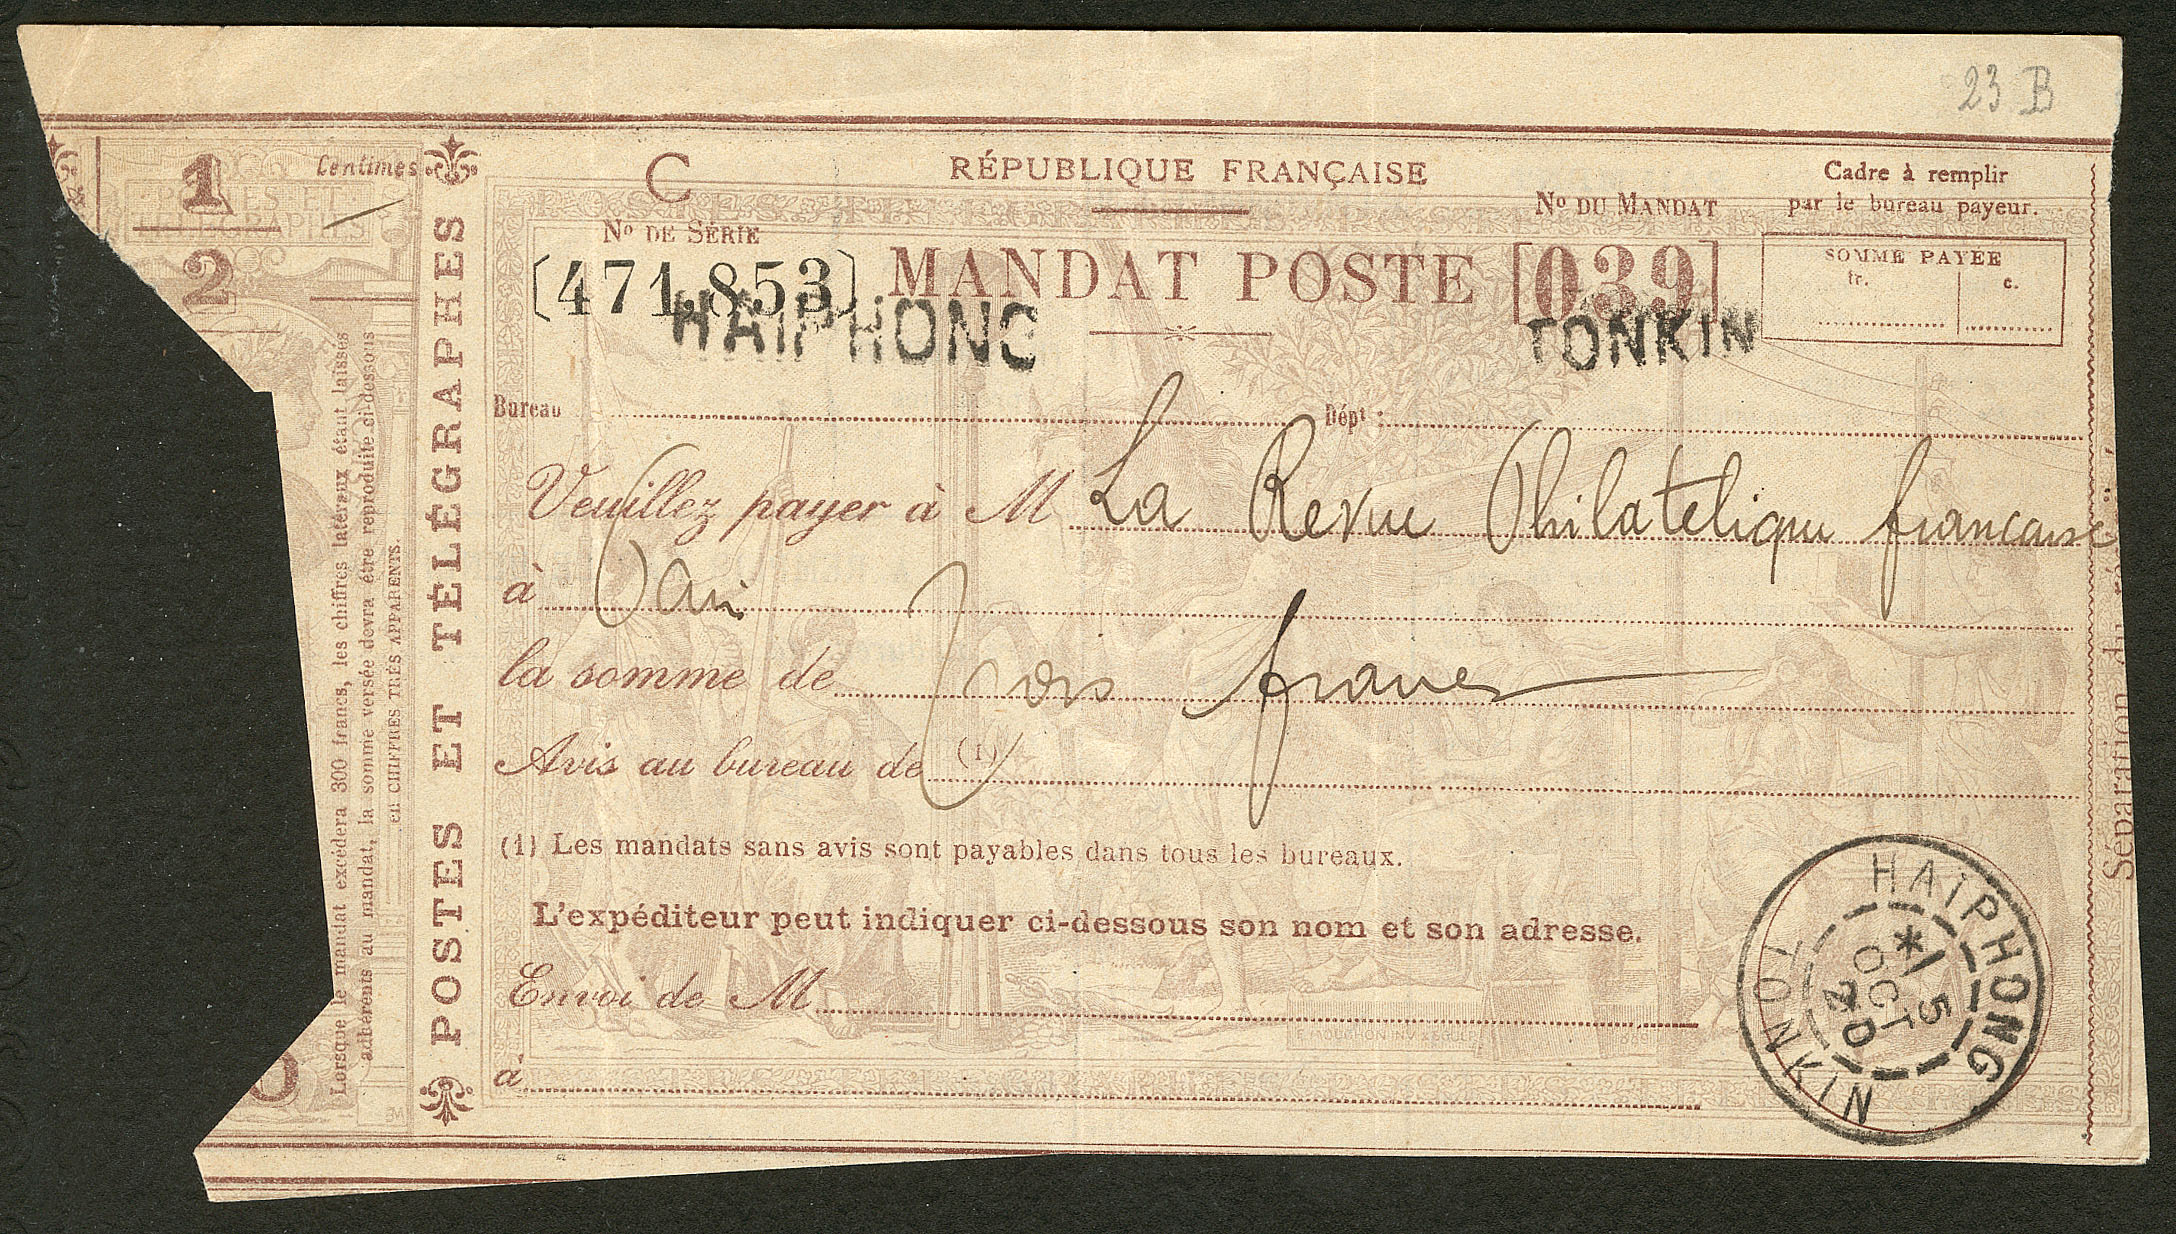 23 B
1
2
Centimes
POSTES ET TÉLÉGRAPHES
Lorsque le mandat excédera 300 francs, les chiffres latéraux étant laissés
adhérents au mandat, la somme versée devra être reproduite ci-dessous
en CHIFFRES TRÈS APPARENTS.
POSTES ET TÉLÉGRAPHES
C
RÉPUBLIQUE FRANÇAISE
No DU MANDAT
Cadre à remplir
par le bureau payeur.
No DE SÉRIE
[471,853]
MANDAT POSTE
[039]
SOMME PAYÉE
fr. c.
HAIPHONG
TONKIN
Bureau
Dépt :
Veuillez payer à M La Revue Philatelique francaise
à Paris
la somme de Trois francs
Avis au bureau de (1)
(1) Les mandats sans avis sont payables dans tous les bureaux.
L'expéditeur peut indiquer ci-dessous son nom et son adresse.
Envoi de M
à
HAÏPHONG
TONKIN
Séparation du